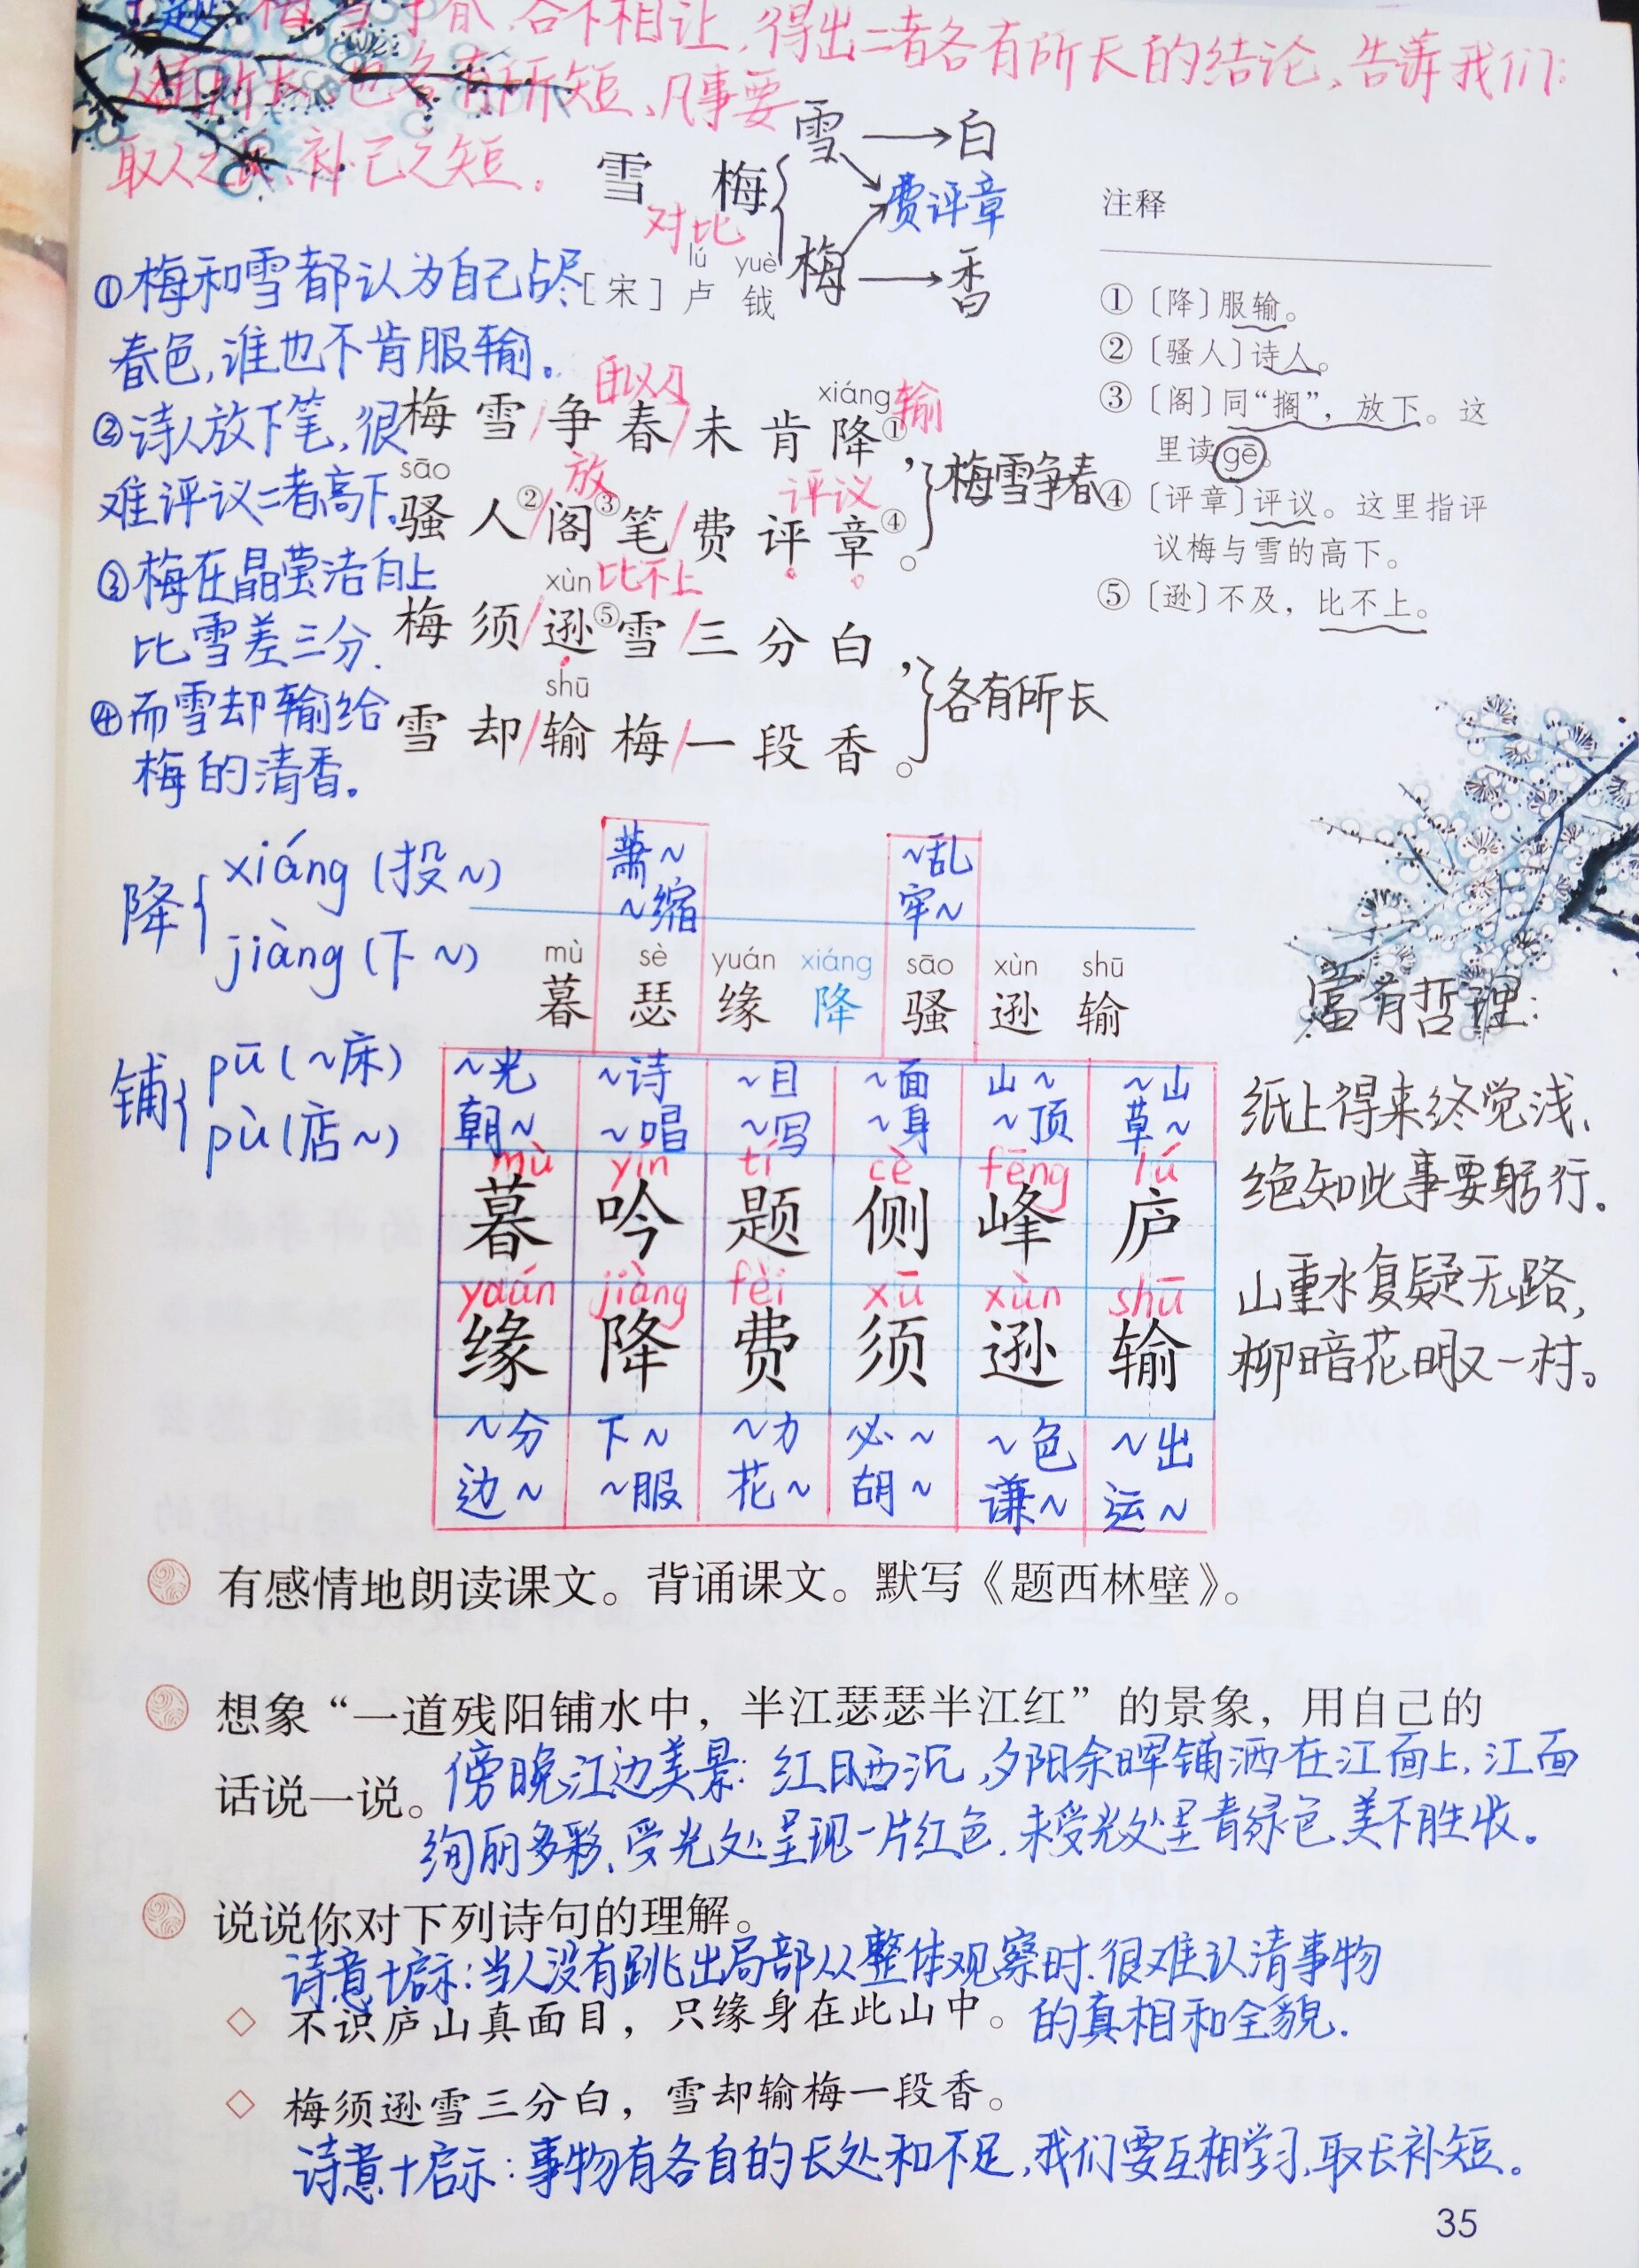 主题
合不相让,得出二者各有所长的结论,告诉我们:
人有所长,也各有所短、凡事要
取人之长、补己之短.
雪→白
雪 梅
对比
费评章
梅→香
lú yuè
[宋] 卢 钺
注释
①〔降〕服输。
②〔骚人〕诗人。
③〔阁〕同“搁”，放下。这
里读gē。
④〔评章〕评议。这里指评
议梅与雪的高下。
⑤〔逊〕不及，比不上。
①梅和雪都认为自己占尽
春色,谁也不肯服输。
②诗人放下笔,很
难评议二者高下.
③梅在晶莹洁白上
比雪差三分.
④而雪却输给
梅的清香。
xiáng 输
梅雪/争春/未肯降①，
sāo 放 评议
骚人②/阁③笔/费评章④。
梅雪争春
xùn 比不上
梅须/逊⑤雪/三分白，
shū
雪却/输梅/一段香。
各有所长
降{xiáng(投~)
jiàng(下~)
铺{pū(~床)
pù(店~)
萧~ ~乱
~缩 牢~
mù sè yuán xiáng sāo xùn shū
暮 瑟 缘 降 骚 逊 输
~光 ~诗 ~目 ~面 山~ ~山
朝~ ~唱 ~写 ~身 ~顶 草~
mù yín tí cè fēng lú
暮 吟 题 侧 峰 庐
yuán jiàng fèi xū xùn shū
缘 降 费 须 逊 输
~分 下~ ~力 必~ ~色 ~出
边~ ~服 花~ 胡~ 谦~ 运~
富有哲理:
纸上得来终觉浅,
绝知此事要躬行.
山重水复疑无路,
柳暗花明又一村。
有感情地朗读课文。背诵课文。默写《题西林壁》。
想象“一道残阳铺水中，半江瑟瑟半江红”的景象，用自己的
话说一说。
傍晚江边美景: 红日西沉,夕阳余晖铺洒在江面上,江面
绚丽多彩、受光处呈现一片红色,未受光处呈青绿色,美不胜收。
说说你对下列诗句的理解。
诗意+启示:当人没有跳出局部从整体观察时,很难认清事物
不识庐山真面目，只缘身在此山中。 的真相和全貌.
梅须逊雪三分白，雪却输梅一段香。
诗意+启示:事物有各自的长处和不足,我们要互相学习,取长补短。
35